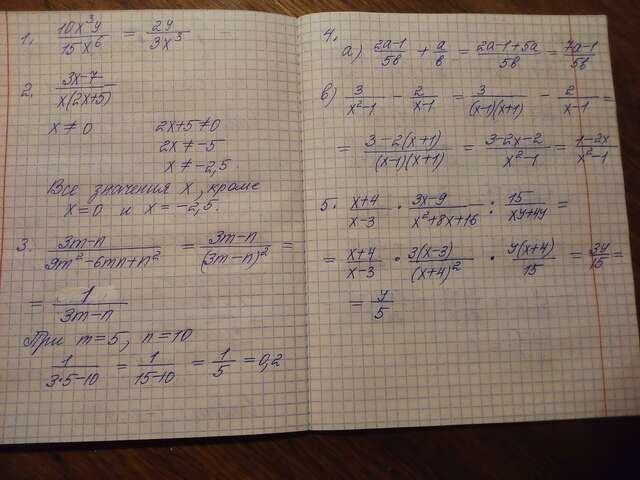 1. 10x³y/15x⁶ = 2y/3x³
2. 3x-7/x(2x+5)
x ≠ 0   2x+5≠0
2x ≠ -5
x ≠ -2,5
Все значения x, кроме
x=0 и x = -2,5.
3. 3m-n/9m²-6mn+n² = 3m-n/(3m-n)² =
= 1/3m-n
При m=5, n=10
1/3·5-10 = 1/15-10 = 1/5 = 0,2
4.
а) 2a-1/5b + a/b = 2a-1+5a/5b = 7a-1/5b
в) 3/x²-1 - 2/x-1 = 3/(x-1)(x+1) - 2/x-1 =
= 3-2(x+1)/(x-1)(x+1) = 3-2x-2/x²-1 = 1-2x/x²-1
5. x+4/x-3 · 3x-9/x²+8x+16 : 15/xy+4y =
= x+4/x-3 · 3(x-3)/(x+4)² · y(x+4)/15 = 3y/15 =
= y/5